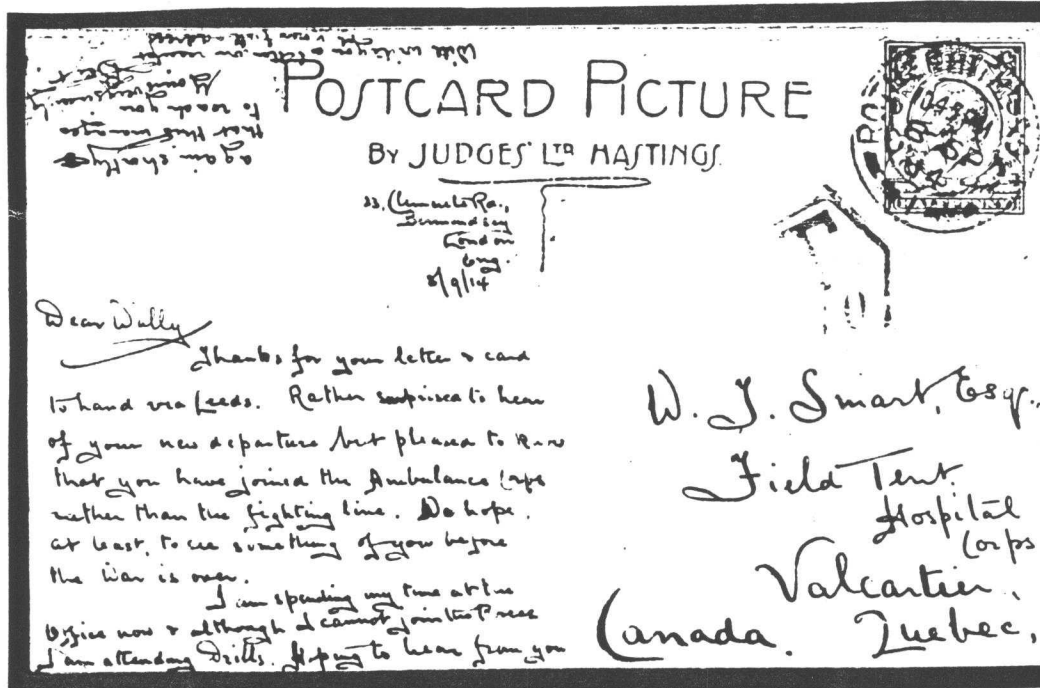 POSTCARD PICTURE
BY JUDGES' LTD HASTINGS.
33,
Bermondsey
London
Eng.
8/9/14
Dear Wally
Thanks for your letter & card
to hand via Leeds. Rather surprised to hear
of your new departure but pleased to know
that you have joined the Ambulance Corps
rather than the fighting line. Do hope,
at least, to see something of you before
the War is over.
I am spending my time at the
Office now & although I cannot join the
I am attending Drills. Hoping to hear from you
again shortly &
that this manages
to reach you
Yours very sincerely
Will write you a letter on receipt
of your full address
W. J. Smart, Esq.,
Field Tent.
Hospital
Corps
Valcartier,
Quebec,
Canada.
HALFPENNY